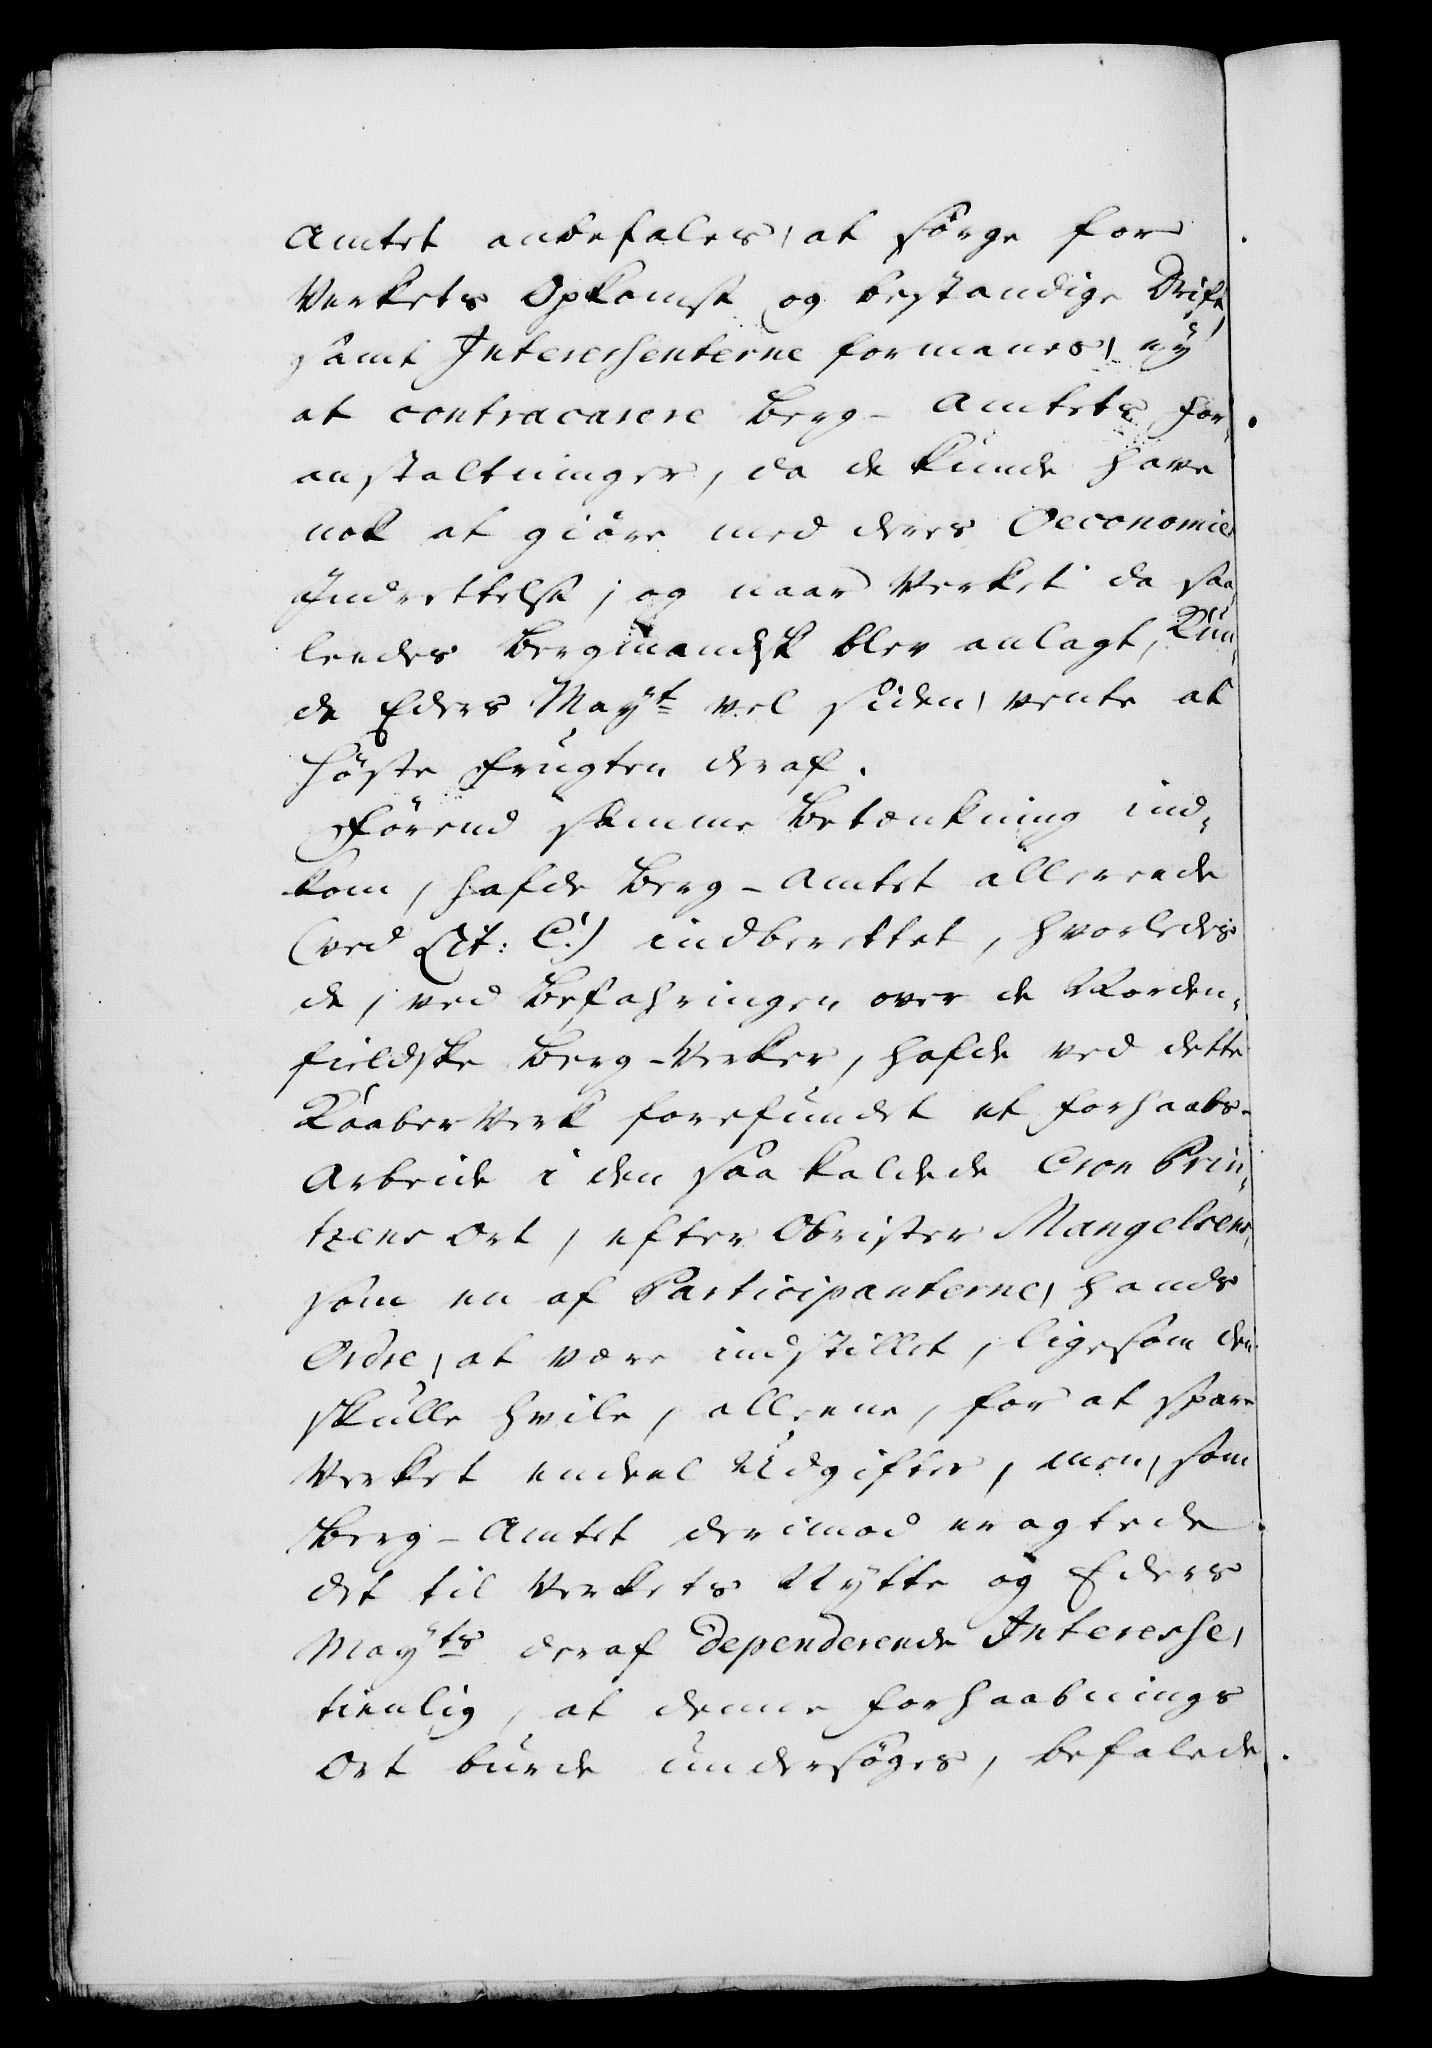 Amtet anbefales, at sørge for
Verkets Opkomst og bestandige Drift,
samt Interessenterne formanes, ey
at contracarere Berg-Amtets For-
anstaltninger, da de kunde have
nok at giøre med deres Oeconomie
Indrettelse, og naar Verket da saa-
leedes Bergmandsk blev anlagt, kun-
de Eders Mayt vel siden, vente at
høste Frugten deraf.
Førend samme Betænkning ind-
kom, hafde Berg-Amtet allereede
(ved Lit: C.) indberettet, hvorledes
de, ved Befahringen over de Norden-
fieldske Berg-Verker, hafde ved dette
Kaaber Verk forefundet et Forhaabs-
Arbeide i den saa kaldede Cron Prin-
tzens Ort, efter Obrister Mangelsens,
som en af Participanterne, hands
Ordre, at være indstillet, ligesom den
skulle hvile, alleene, for at spare
Verket endeel Udgifter, men, som
Berg-Amtet derimod eragtede
det til Verkets Nytte og Eders
Mayts deraf dependerende Interesse,
tienlig, at denne Forhaabnings
Ort burde undersøges, befalede